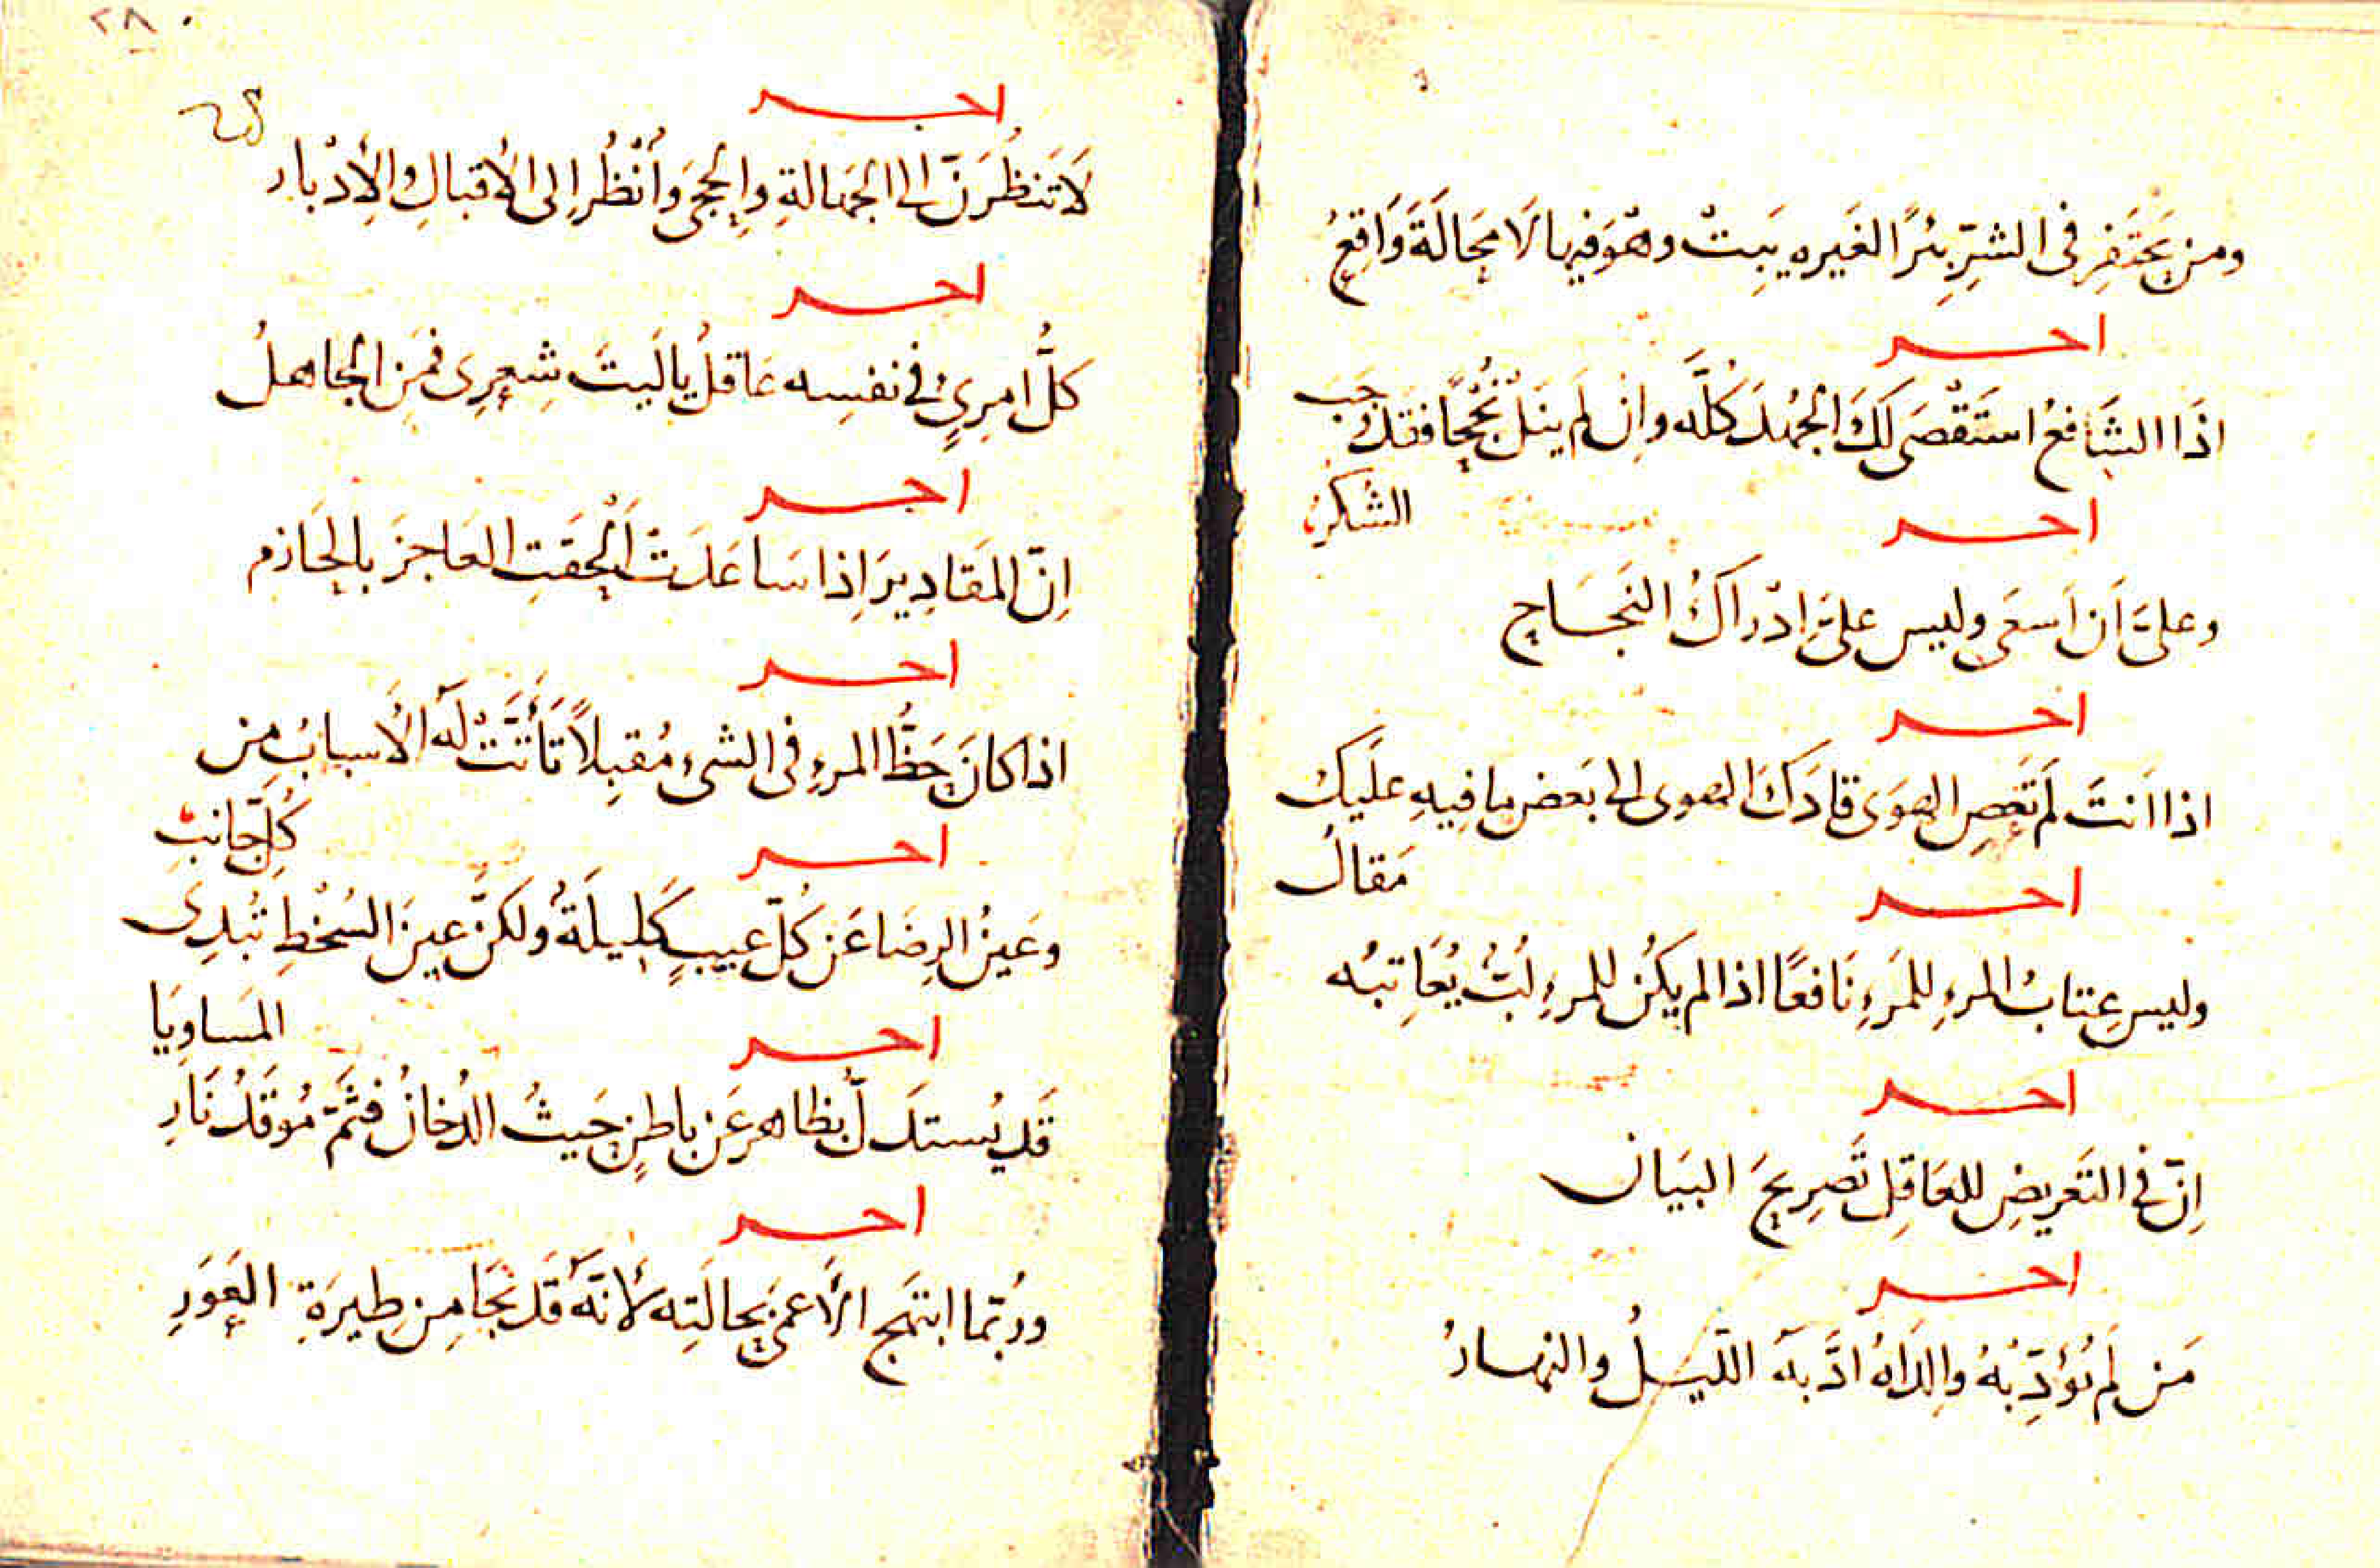 ومن يَحتَفِر فى الشرِّ بئرًا لغَيره يَبِتْ وهْوَ فيها لَا مَحَالَةَ وَاقِعُ
اخر
اذَا الشَافعُ استَقْصَى لَكَ الجُهدَ كُلَّه وان لَم يَنَل نُجْحًا فقَد وجَب
الشُكرُ
اخر
وعلىَّ اَن اَسعَى وليس علىَّ ادْرَاكُ النَجَاحِ
اخر
اذا اَنتَ لَم تَعصِ الهوَى قادَكَ الهوى الى بَعض ما فِيهِ عَلَيكَ
مَقالُ
اخر
وليس عِتابُ المرءِ للمَرءِ نَافعًا اذا لم يكُن للمرءِ لُبٌّ يُعَاتبُه
اخر
اِنّ فى التَعريضِ للعَاقِل تَصرِيحَ البَيَان
اخر
مَن لَم يُؤَدِّبْهُ وَالِدَاهُ ادَّبهَ اللّيلُ والنهارُ
٢٨
اخر
لَا تَنظُرَنّ الى الجَهالةِ والحِجَى وَاُنْظُر اِلى الاِقبالِ والاِدْبار
اخر
كلُّ امرِىٍ فى نفسِه عَاقلُ يا لَيتَ شِعرِى فمَنِ الجاهلُ
اخر
اِنّ المَقَادِيرَ اِذا سَاعَدَتْ اَلْحَقَتِ العَاجزَ بالحَازم
اخر
اذا كانَ حَظُّ المرءِ فى الشىءِ مُقبِلاً تَأَتَّتْ لَه الاَسبابُ مِن
كُلِّ جَانبِ
اخر
وعَينُ الرِضَا عَن كُلّ عَيبٍ كَلِيلَةُ ولكنّ عينَ السُخْطِ تُبدِى
المَساوِيَا
اخر
قَد يُستدَلّ بظاهرٍ عَن باطنٍ حَيثُ الدُخانُ فثَمّ مُوقَدُ نَارِ
اخر
ورُبّما ابتهَج الاَعمَى بحالَتِه لاَنّهَ قَد نَجَا مِن طِيرَةِ العَوَرِ